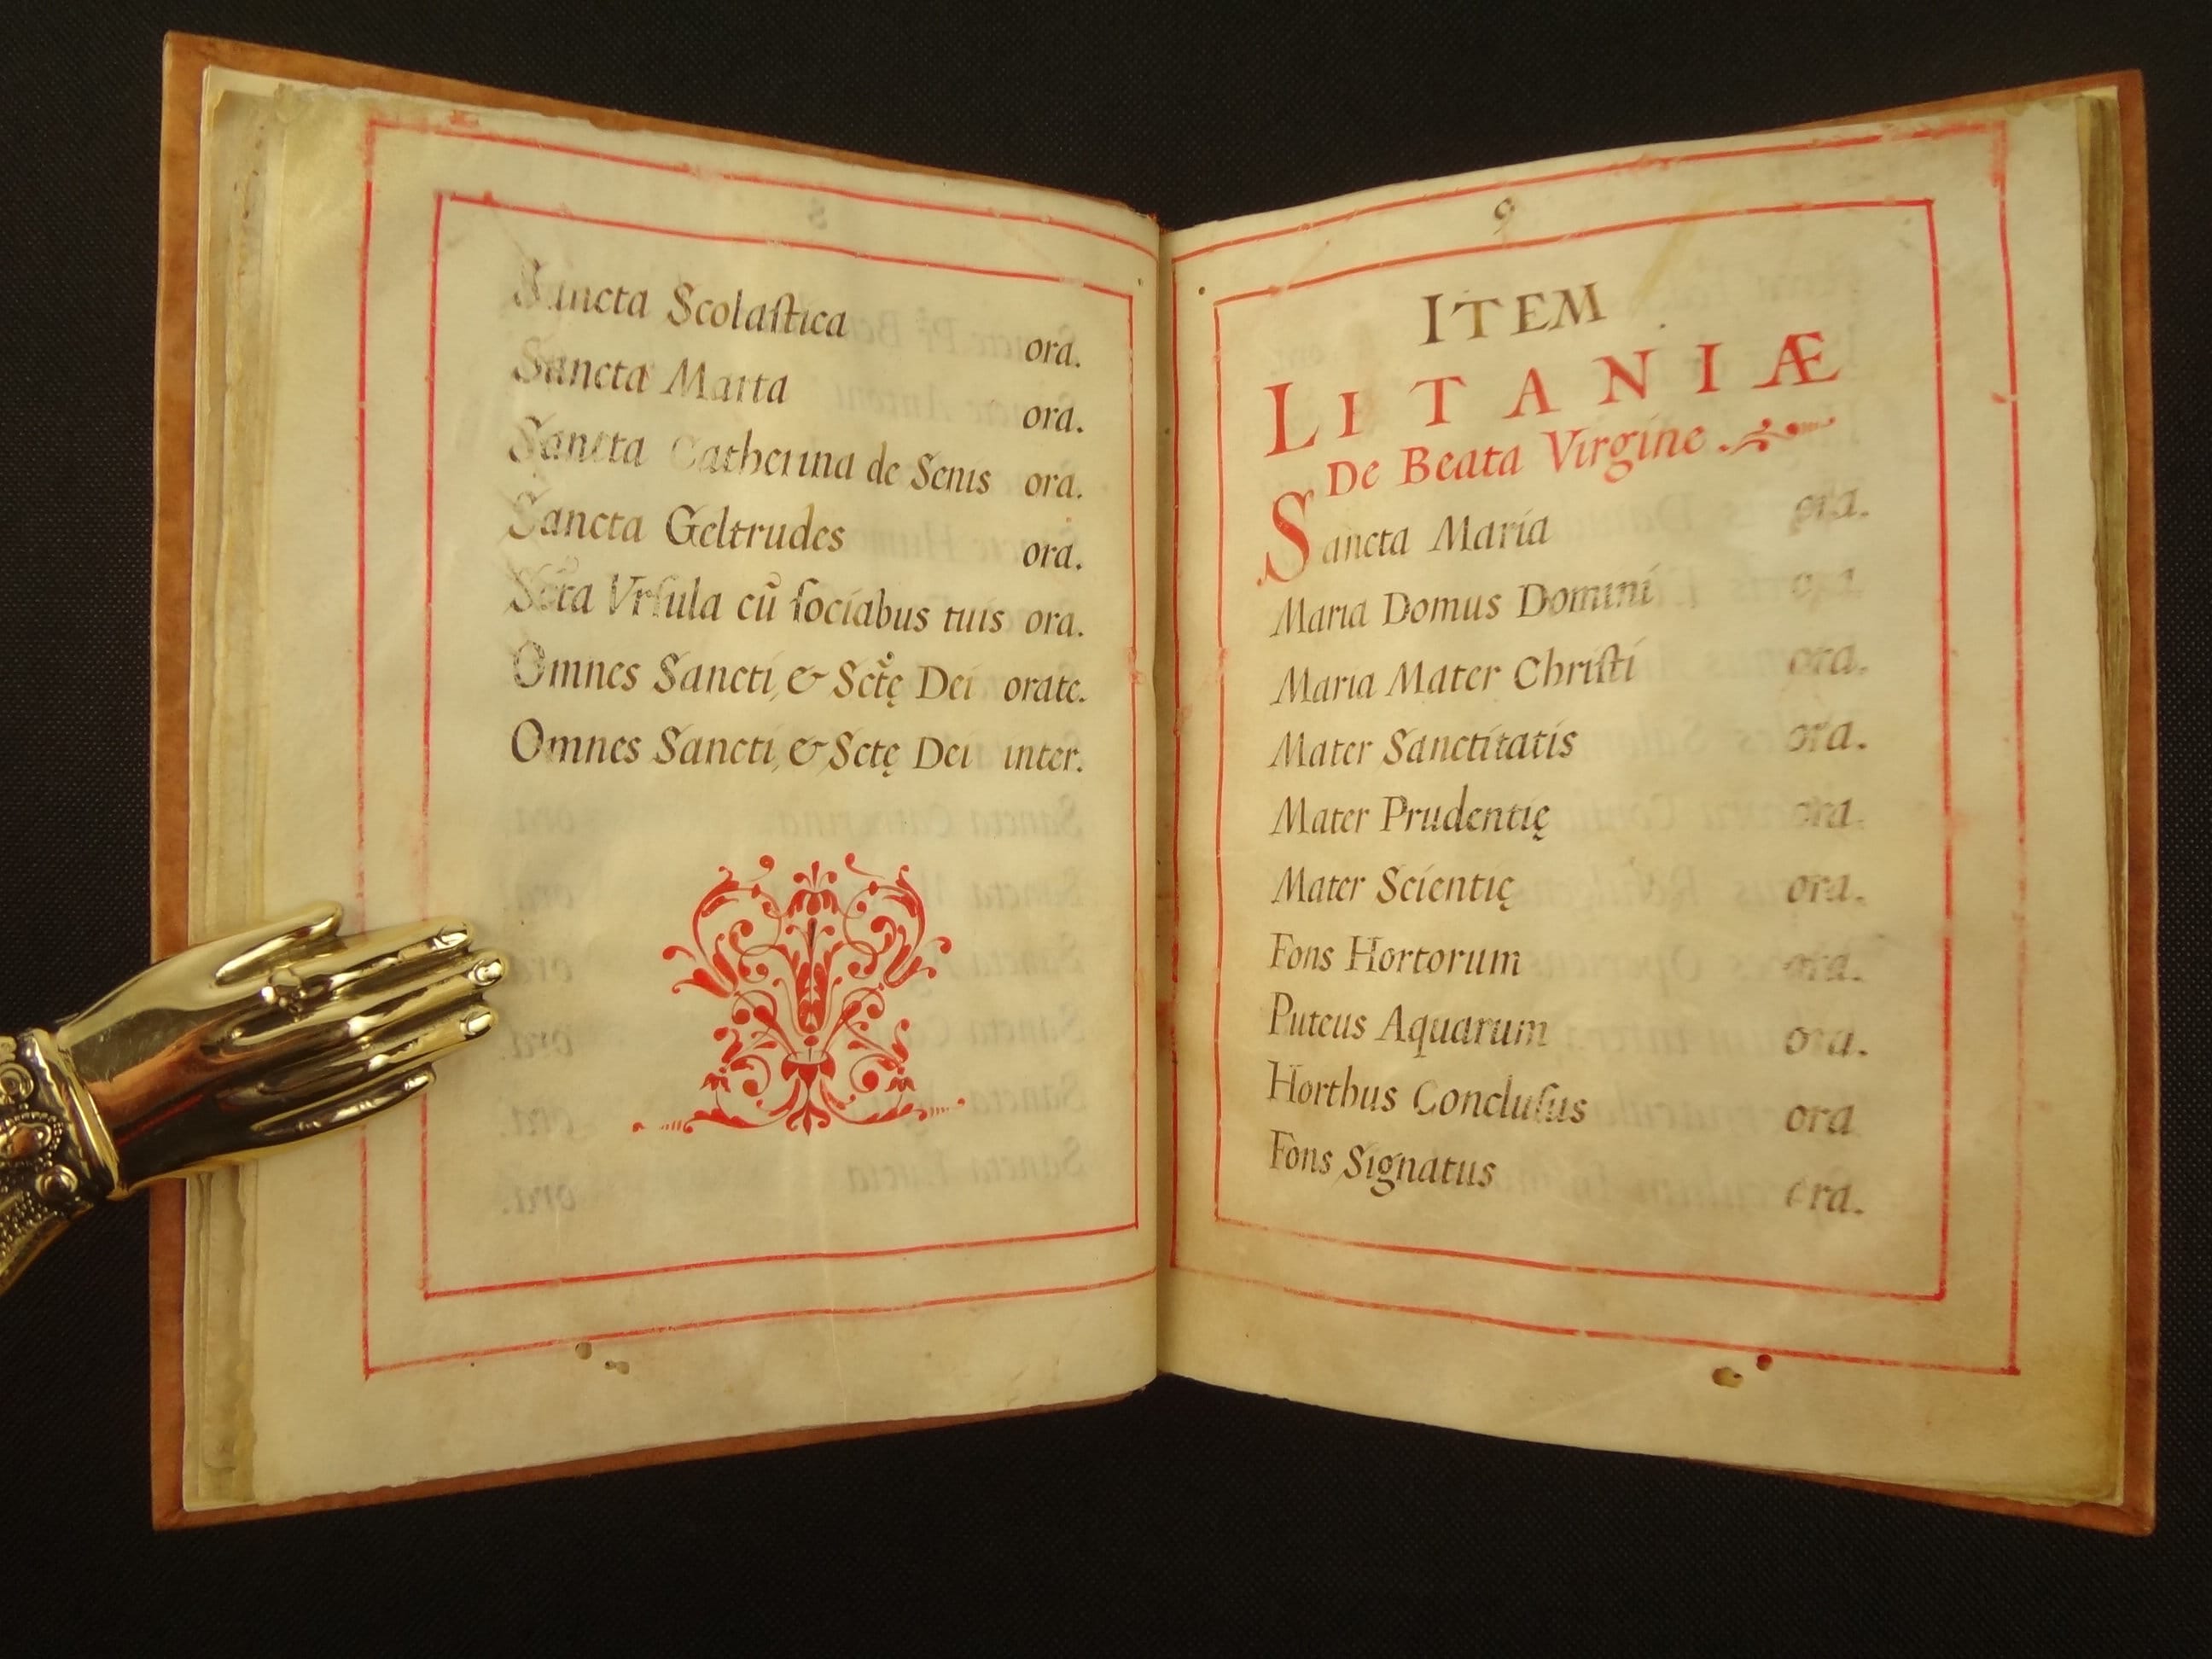 Sancta Scolaſtica ora.
Sancta Marta ora.
Sancta Catherina de Senis ora.
Sancta Geltrudes ora.
Scta Vrſula cū ſociabus tuis ora.
Omnes Sancti, & Sctę Dei orate.
Omnes Sancti, & Sctę Dei inter.
9
ITEM
LITANIÆ
De Beata Virgine
Sancta Maria ora.
Maria Domus Domini ora.
Maria Mater Chriſti ora.
Mater Sanctitatis ora.
Mater Prudentię ora.
Mater Scientię ora.
Fons Hortorum ora.
Puteus Aquarum ora.
Horthus Concluſus ora
Fons Signatus ora.